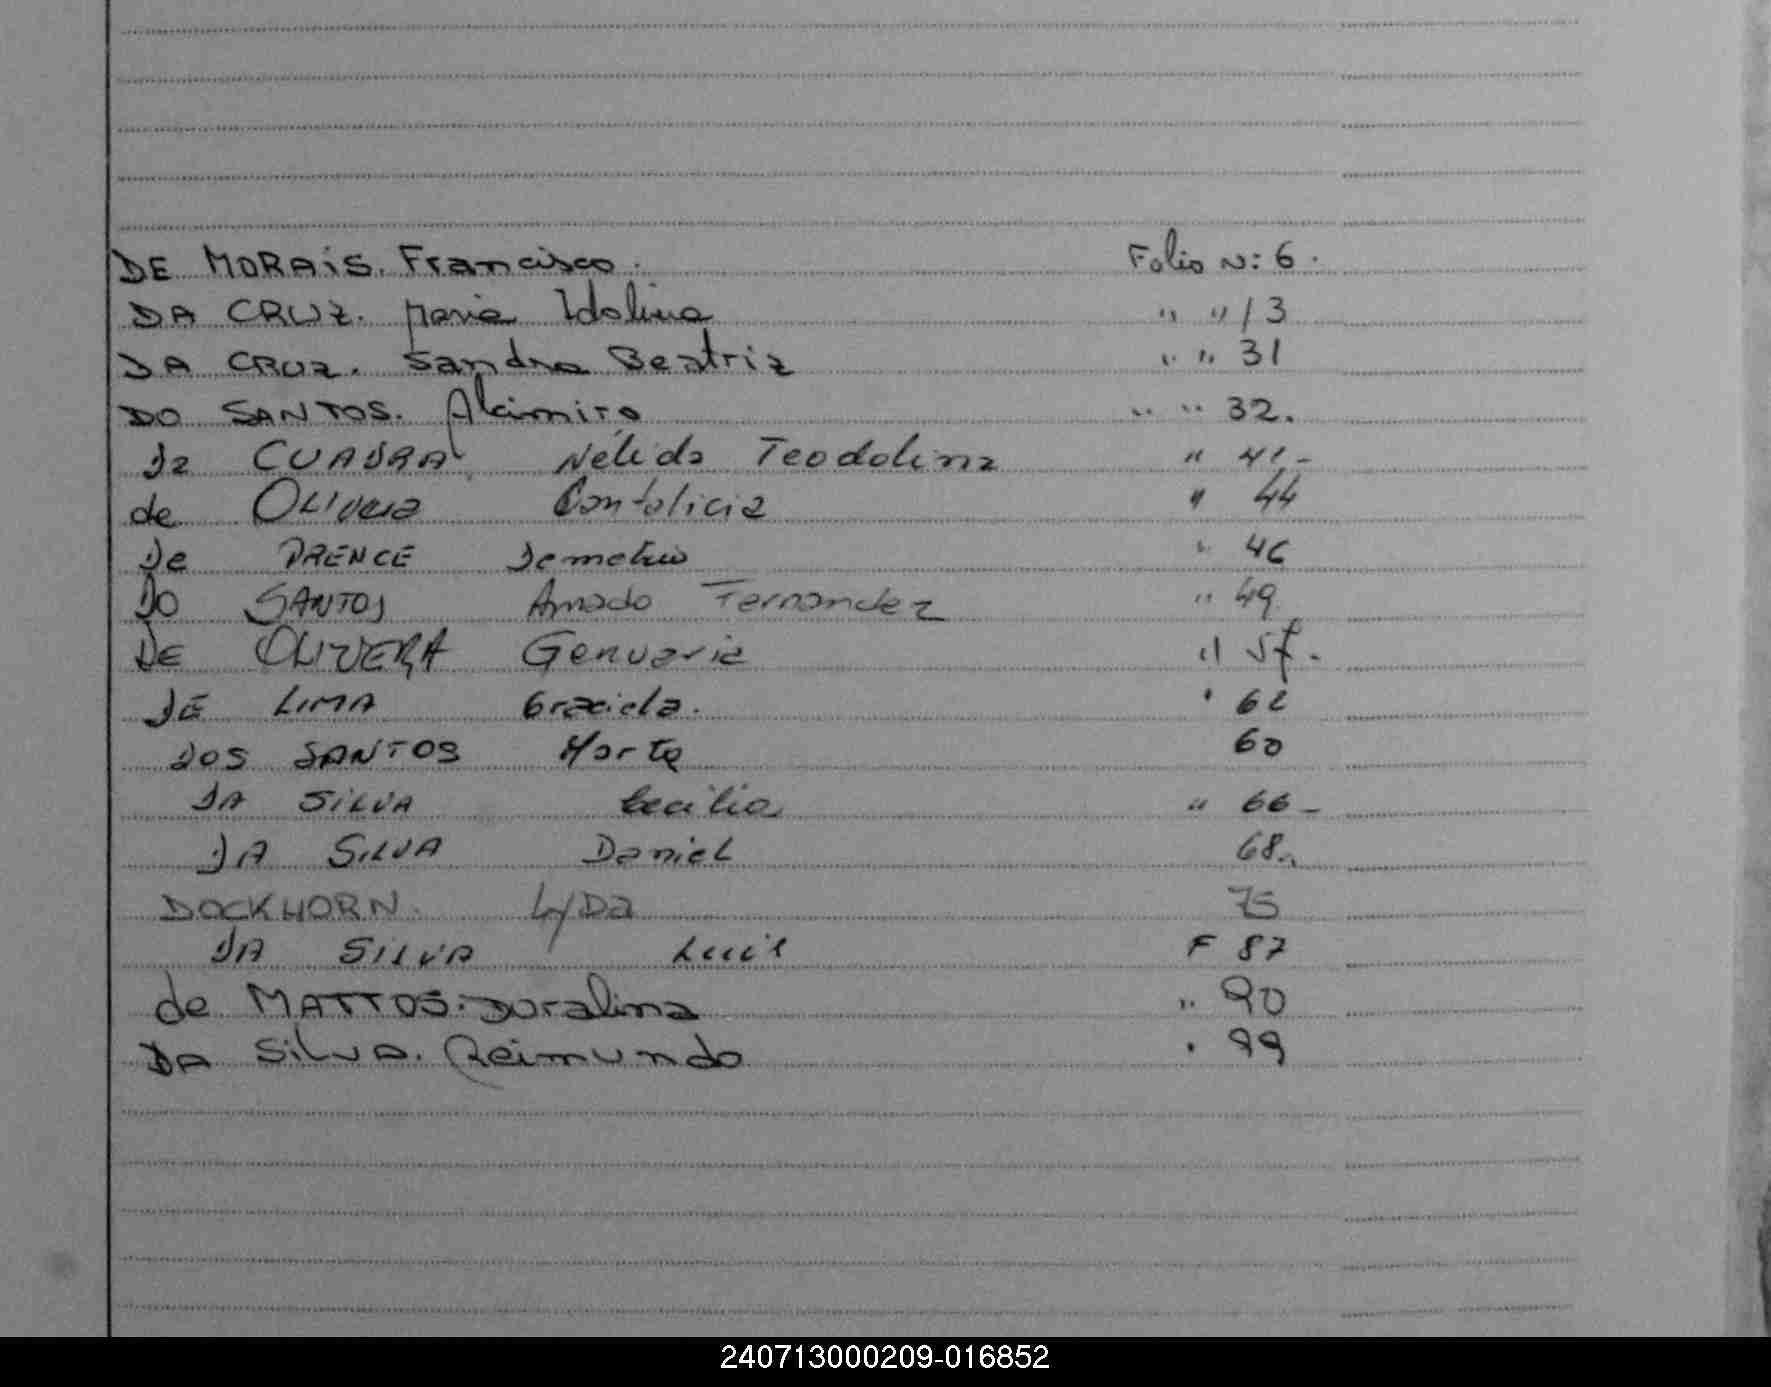 DE MORAIS. Francisco. Folio N: 6.
DA CRUZ. Maria Idolina " " 13
DA CRUZ. Sandra Beatriz " " 31
DO SANTOS. Alcimiro " " 32.
da CUADRA Nélida Teodolina " 41-
de OLIVEIRA " 44
De PRENCE Demetrio " 46
DO SANTOS Amado Fernandez " 49
DE OLIVERA Genuaria " 57.
DE LIMA Graciela. " 62
DOS SANTOS Marta 60
DA SILVA Cecilia " 66-
DA SILVA Daniel 68.
DOCKHORN. LyDa 75
DA SILVA Luis F 87
de MATTOS. Doralina " 90
DA SILVA. Reimundo " 99
240713000209-016852